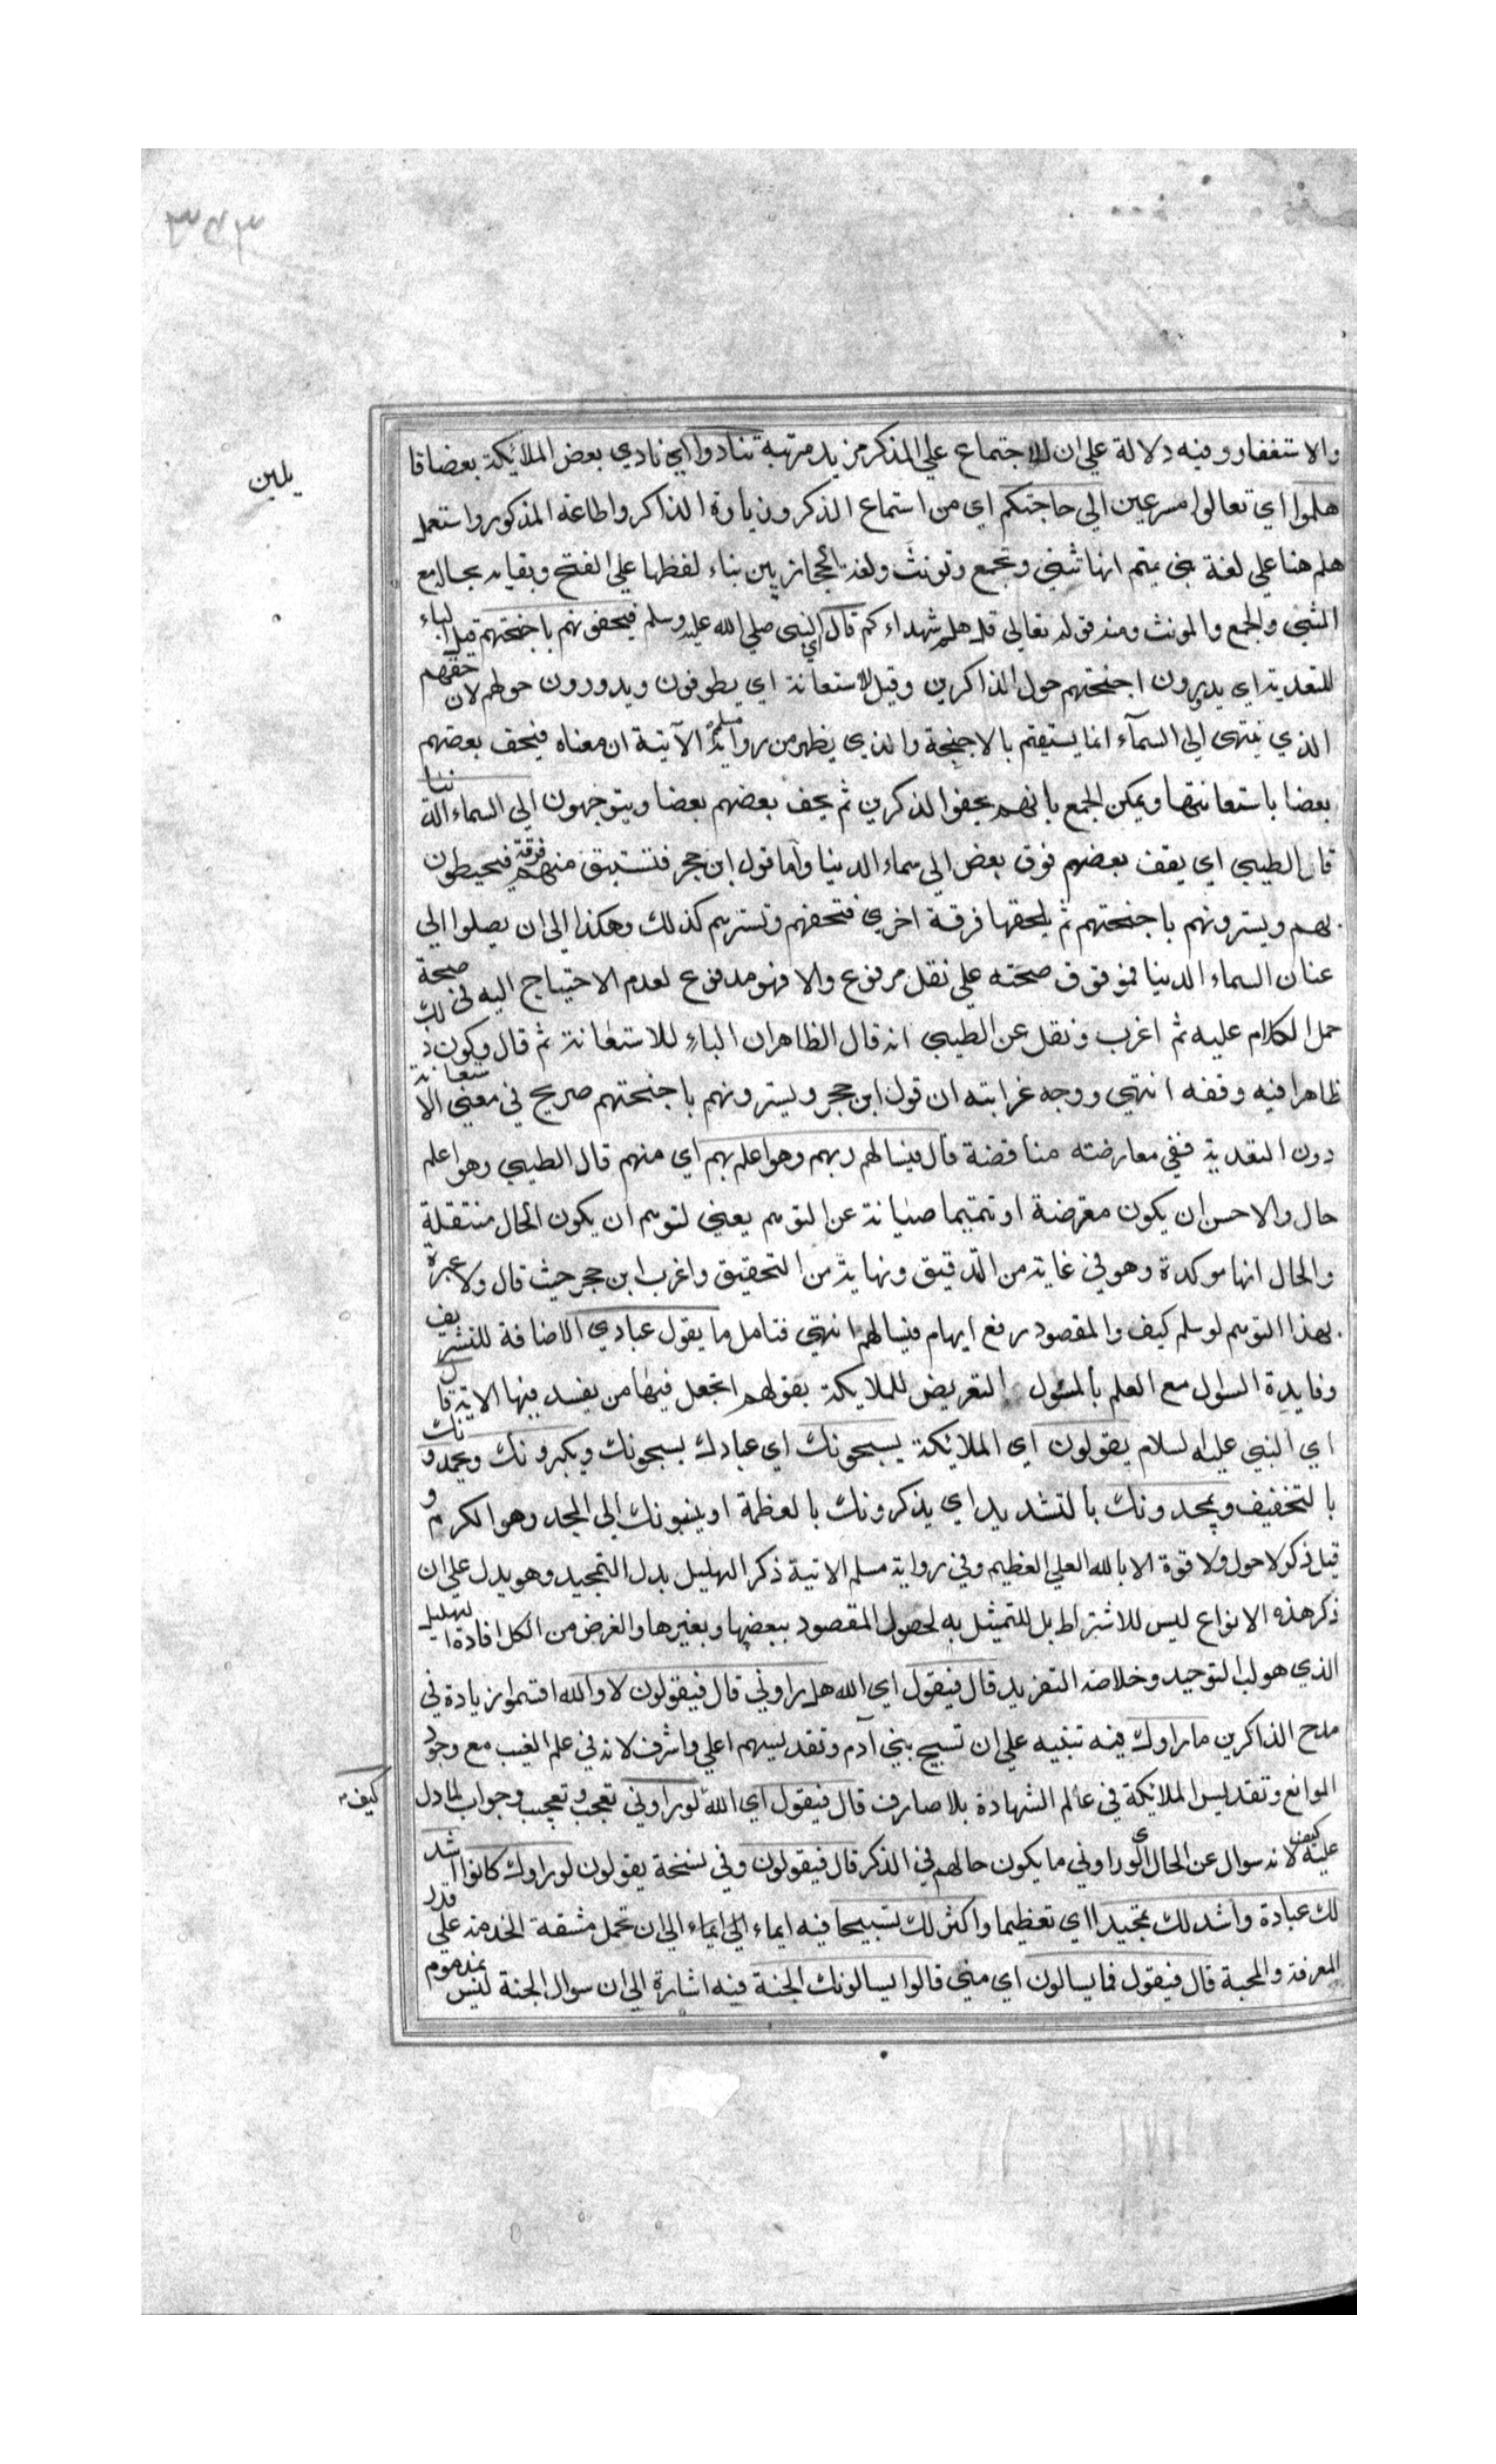 ٣٤٣
والاستغفار وفيه دلالة علي ان للاجتماع علي الذكر مزيد مرتبة تنادوا اي نادي بعض الملائكة بعضا قا
يلين
هلموا اي تعالوا مسرعين الي حاجتكم اي من استماع الذكر وزيارة الذاكر واطاعة المذكور واستعمل
هلم هنا علي لغة بني تميم انها تثني وتجمع وتونث ولغة الحجازيين بناء لفظها علي الفتح وبقايه بحاله مع
المثني والجمع والمونث ومنه قوله تعالي قل هلم شهداءكم قال اي النبي صلي الله عليه وسلم فيحفونهم باجنحتهم قيل الباء
للتعدية اي يديرون اجنحتهم حول الذاكرين وقيل للاستعانة اي يطوفون ويدورون حولهم لان حفهم
الذي ينتهي الي السمآء انما يستقيم بالاجنحة والذي يظهر من رواية مسلم الآتية ان معناه فيحف بعضهم
بعضا باستعانتها ويمكن الجمع بانهم يحفوا الذكرين ثم يحف بعضهم بعضا ويتوجهون الي السماء الدنيا
قال الطيبي اي يقف بعضهم فوق بعض الي سماء الدنيا واما قول ابن حجر فتستبق منهم فرقة فيحيطون
بهم ويسترونهم باجنحتهم ثم يلحقها فرقة اخري فتحفهم وتسترهم كذلك وهكذا الي ان يصلوا الي
عنان السماء الدنيا فموقوف صحته علي نقل مرفوع والا فهو مدفوع لعدم الاحتياج اليه في صحة
حمل الكلام عليه ثم اغرب ونقل عن الطيبي انه قال الظاهر ان الباء للاستعانة ثم قال وكون ذلك
ظاهرا فيه وقفه انتهي ووجه غرابته ان قول ابن حجر ويسترونهم باجنحتهم صريح في معني الاستعانة
دون التعدية ففي معارضته مناقضة قال فيسالهم ربهم وهو اعلم بهم اي منهم قال الطيبي وهو اعلم
حال والاحسن ان يكون معترضة او تتميما صيانة عن التوهم يعني لتوهم ان يكون الحال منتقلة
والحال انها موكدة وهو في غاية من التدقيق ونهاية من التحقيق واغرب ابن حجر حيث قال ولا عبرة
بهذا التوهم لو سلم كيف والمقصود رفع ايهام فيسالهم انتهي فتامل ما يقول عبادي الاضافة للتشريف
وفايدة السؤل مع العلم بالمسئول التعريض للملايكة بقولهم اتجعل فيها من يفسد فيها الاية قال
اي النبي عليه السلام يقولون اي الملائكة يسبحونك اي عبادك يسبحونك ويكبرونك ويحمدونك
بالتخفيف ويمجدونك بالتشديد اي يذكرونك بالعظمة او ينسبونك الي المجد وهو الكرم و
قيل ذكر لا حول ولا قوة الا بالله العلي العظيم وفي رواية مسلم الاتية ذكر التهليل بدل التمجيد وهو يدل علي ان
ذكر هذه الانواع ليس للاشتراط بل للتمثيل به لحصول المقصود ببعضها وبغيرها والغرض من الكل افادة التهليل
الذي هو لب التوحيد وخلاصة التفريد قال فيقول اي الله هل راوني قال فيقولون لا والله اقتموا زيادة في
مدح الذاكرين ما راوك فيه تنبيه علي ان تسبيح بني آدم وتقديسهم اعلي واشرف لانه في علم الغيب مع وجود
الموانع وتقديس الملائكة في عالم الشهادة بلا صارف قال فيقول اي الله لو راوني تعجب وتعجيب وجواب لما دل
كيف
عليه كيف لانه سوال عن الحال اي لو راوني ما يكون حالهم في الذكر قال فيقولون وفي نسخة يقولون لو راوك كانوا اشد
لك عبادة واشد لك تمجيدا اي تعظيما واكثر لك تسبيحا فيه ايماء الي ايماء الي ان تحمل مشقة الخدمة علي قدر
المعرفة والمحبة قال فيقول فما يسالون اي مني قالوا يسالونك الجنة فيه اشارة الي ان سوال الجنة ليس بمذموم